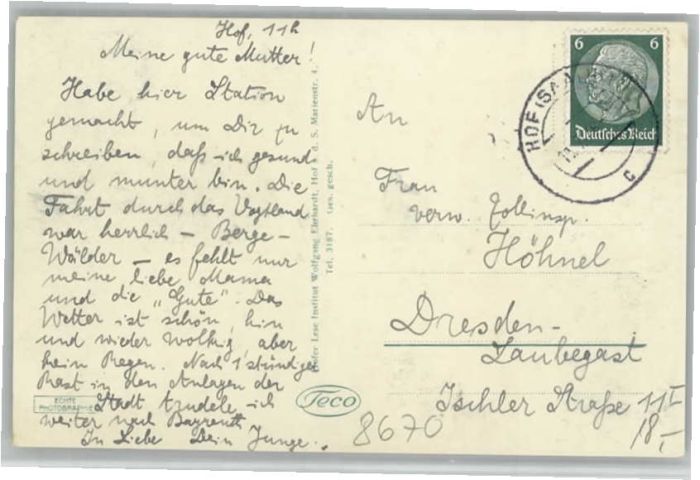 Hof, 11h
Meine gute Mutter!
Habe hier Station
gemacht, um Dir zu
schreiben, daß ich gesund
und munter bin. Die
Fahrt durch das Vogtland
war herrlich – Berge –
Wälder – es fehlt nur
meine liebe Mama
und die „Gute". Das
Wetter ist schön, hin
und wieder wolkig, aber
kein Regen. Nach 1stündiger
Rast in den Anlagen der
Stadt trudele ich
weiter nach Bayreuth
In Liebe Dein Junge.
ECHTE
PHOTOGRAPHIE
Hofer Lese Institut Wolfgang Ehrhardt, Hof a. d. S. Marienstr. 4.
Tel. 3187. Ges. gesch.
Teco
6 6
Deutsches Reich
HOF (SAALE)
c
An
Frau
verw. Zollinsp.
Höhnel
Dresden-
Laubegast
Ischler Straße 11 I
8670
18,-